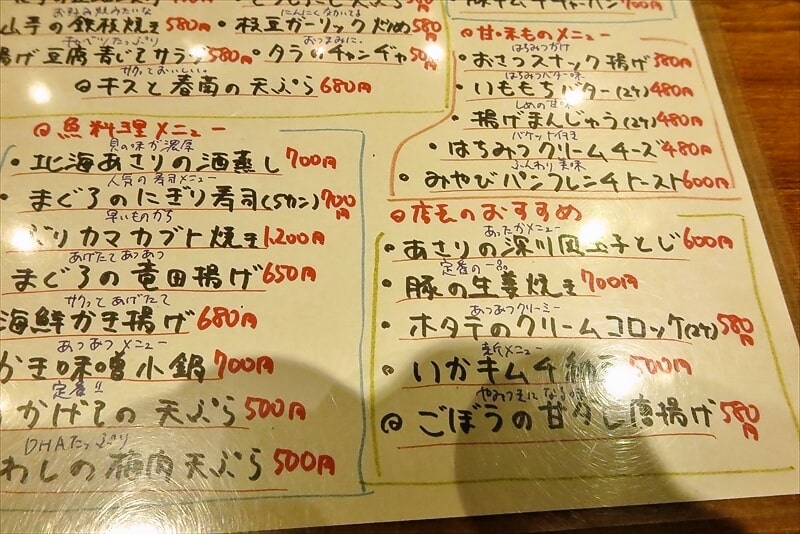 お好み焼みたいな
山芋の鉄板焼き580円
チャバリたっぷり
揚げ豆腐青じそサラダ580円
サクッとおいしい
◎キスと春菊の天ぷら680円
にんにくなかてる
枝豆ガーリック炒め580円
おつまみに
タラのチャンヂャ
700円
◎魚料理メニュー
貝の味が濃厚
・北海あさりの酒蒸し700円
人気の寿司メニュー
・まぐろのにぎり寿司(5カン)700円
早いものがち
ぶりカマカブト焼き1,200円
あげたてあつあつ
まぐろの竜田揚げ650円
サクッとあげたて
海鮮かき揚げ680円
あつあつメニュー
かき味噌小鍋700円
定番!!
かげその天ぷら500円
DHAたっぷり
わしの梅肉天ぷら500円
◎甘味ものメニュー
はちみつかけ
・おさつスナック揚げ380円
はちみつバター味
・いももちバター(2ケ)480円
しめの甘味
・揚げまんじゅう(2ケ)480円
バケット付き
・はちみつクリームチーズ480円
ふんわり美味
・みやびパンフレンチトースト600円
◎店長のおすすめ
あったかメニュー
・あさりの深川風玉子とじ600円
定番の一品
・豚の生姜焼き700円
あつあつクリーミー
・ホタテのクリームコロッケ(2ケ)580円
新メニュー
・いかキムチ納豆500円
やみつきになる味
◎ごぼうの甘辛し唐揚げ580円